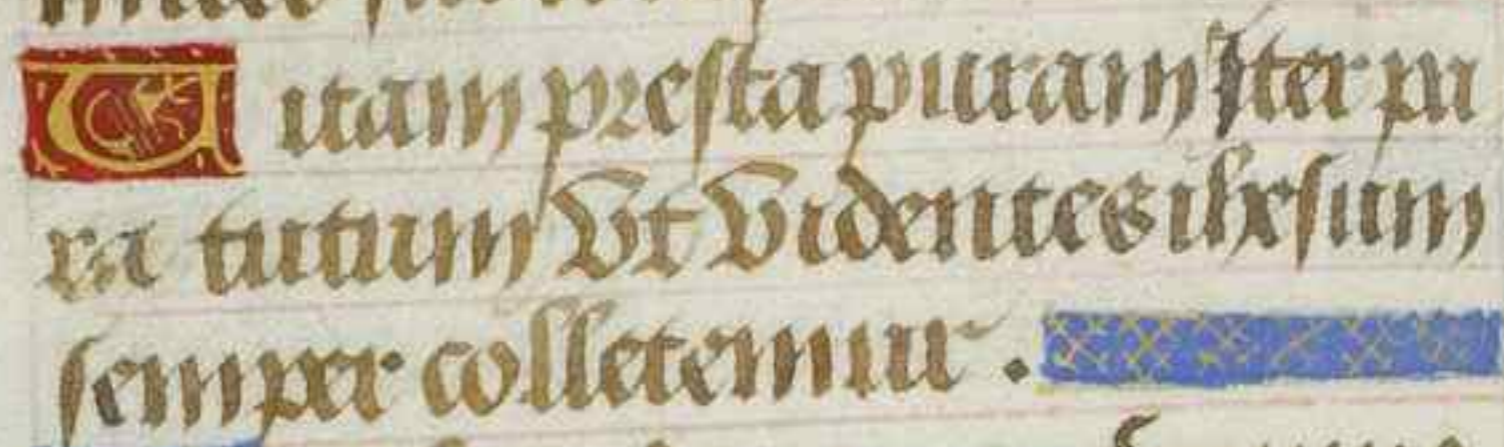 Uitam presta puram Iter pa
ra tutum Ut Videntes ihesum
semper colletemur .